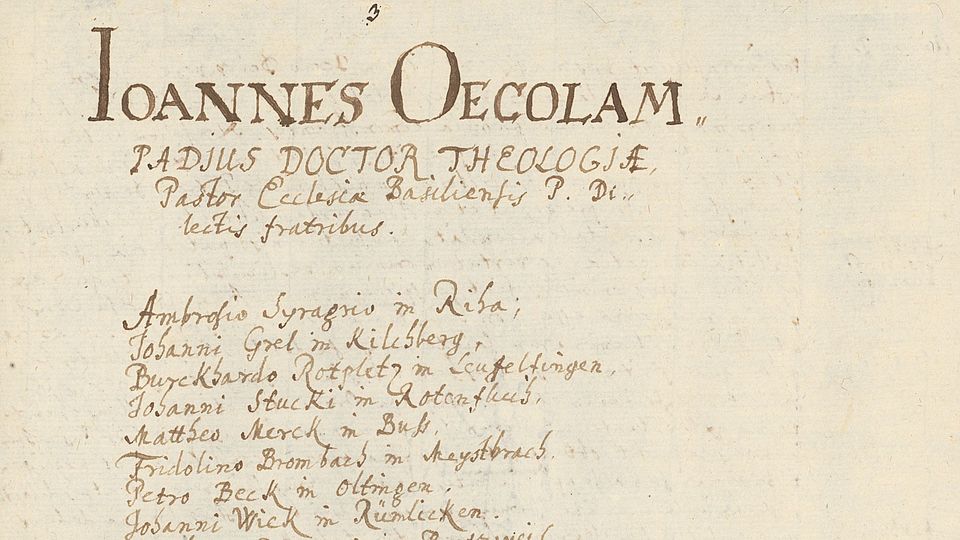 3
IOANNES OECOLAM„
PADIUS DOCTOR THEOLOGIÆ,
Pastor Ecclesiæ Basiliensis P. Di„
lectis fratribus.
Ambrosio Syragrio in Riha;
Johanni Grel in Kilchberg,
Burckhardo Rotpletz in Leufelfingen,
Johanni Stucki in Rotenfluh,
Mattheo Merck in Buss,
Fridolino Brombach in Meystbrach.
Petro Beck in Oltingen.
Johanni Wick in Rümlicken.